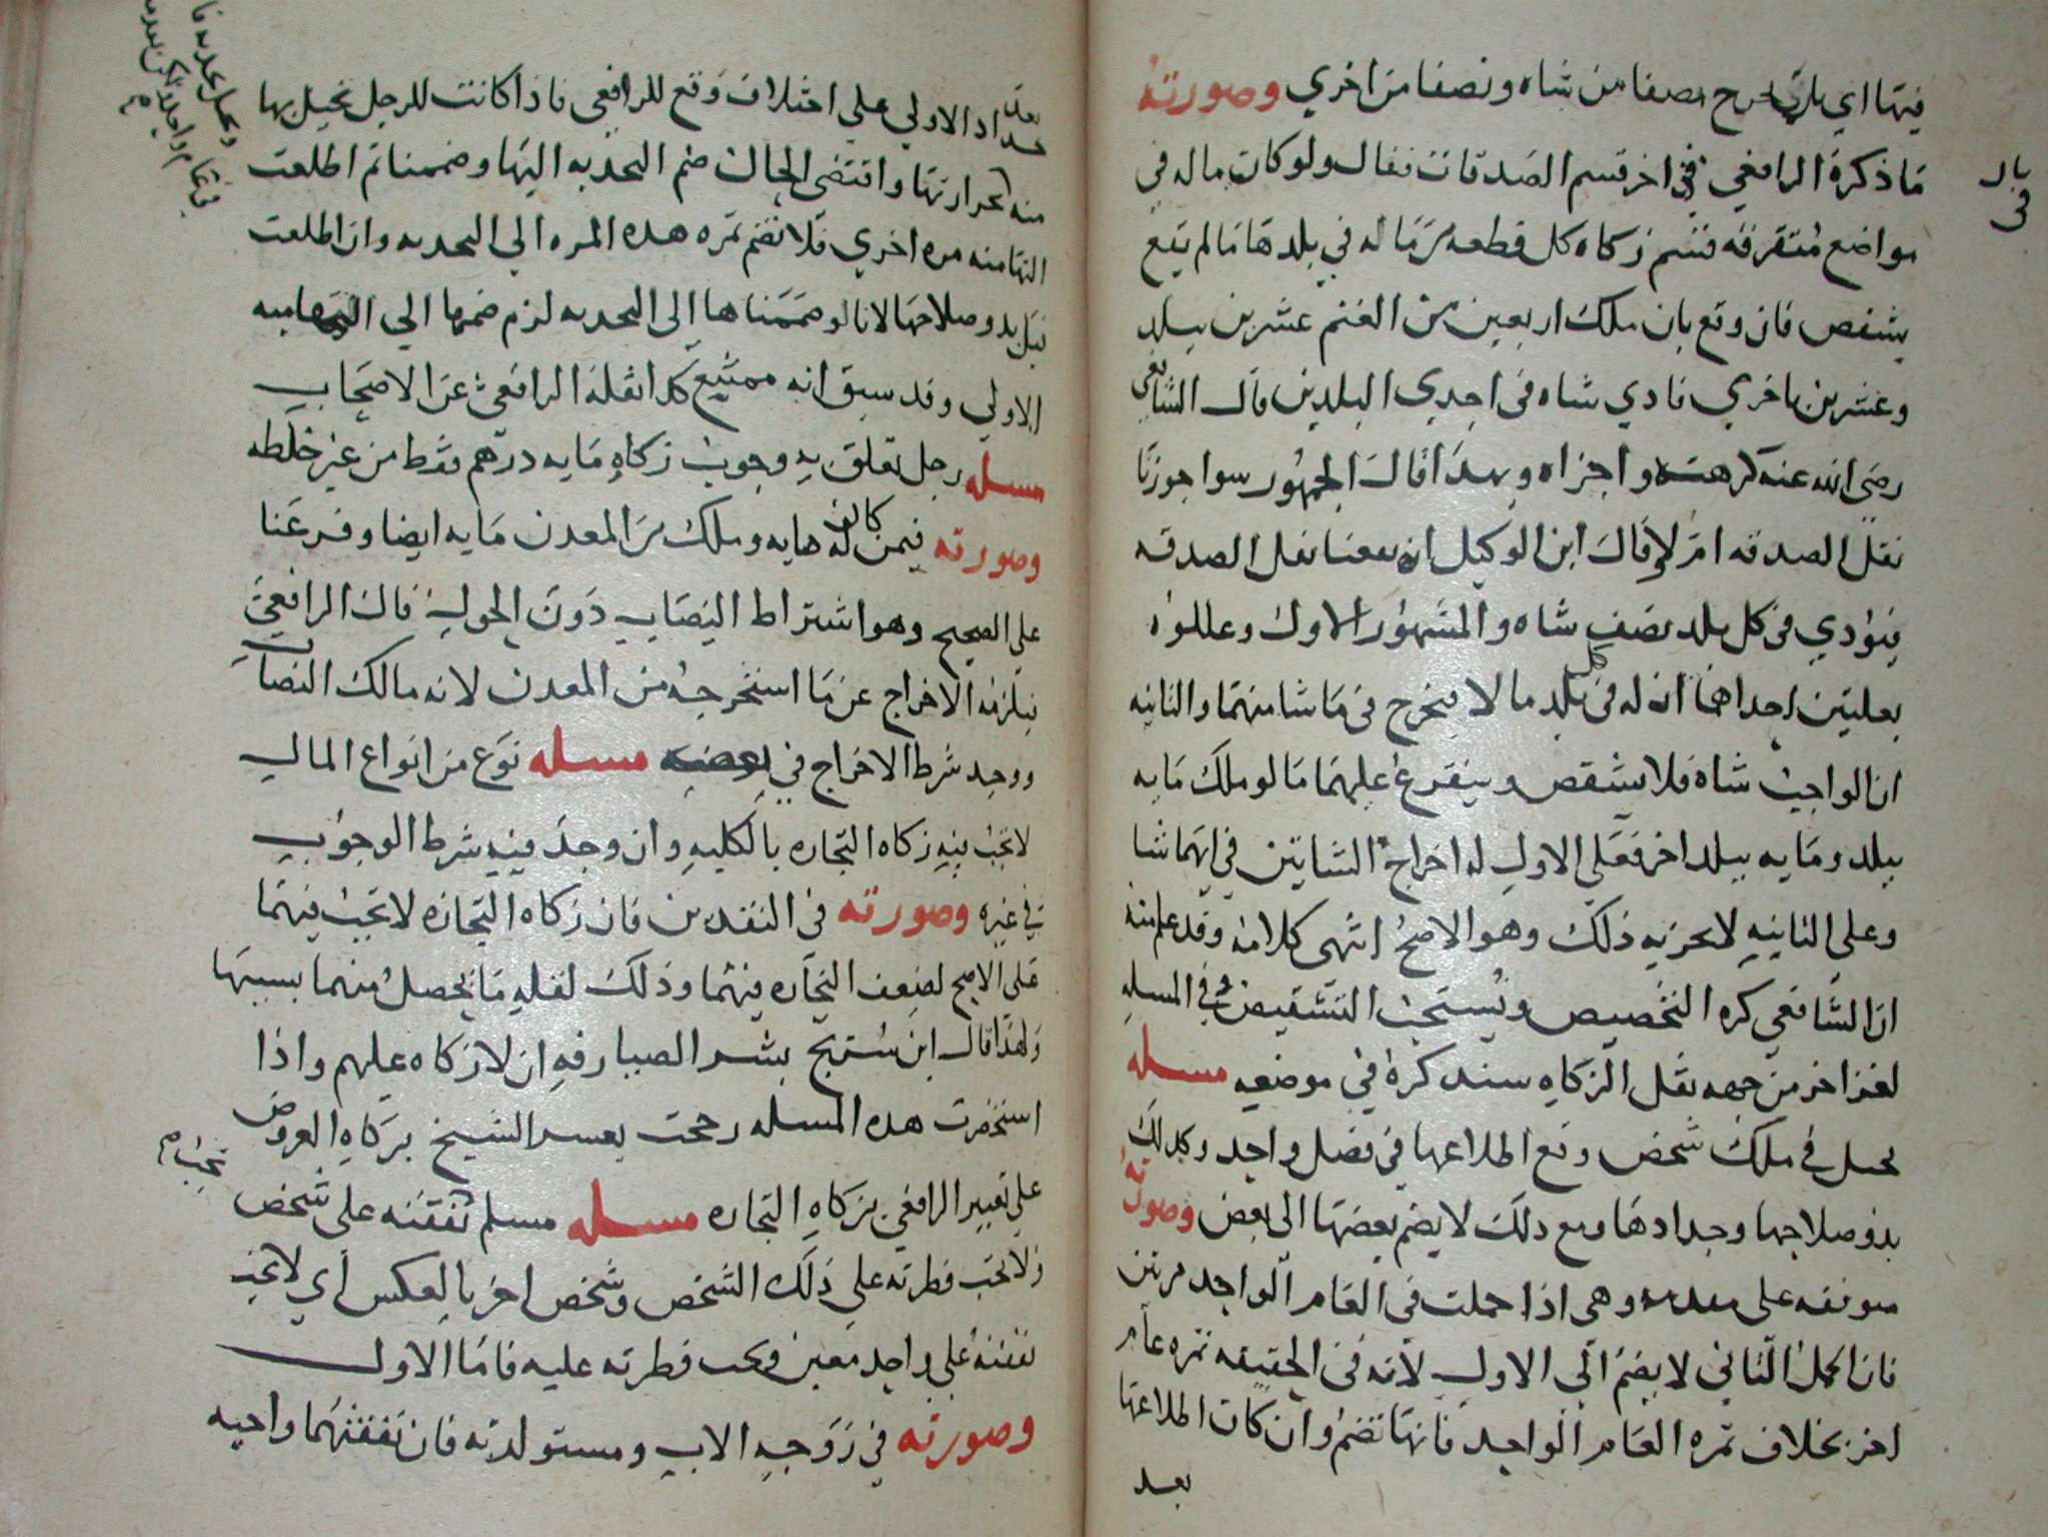 فيها اي بان يخرج نصفا من شاه ونصفا من اخري وصورته
ما ذكره الرافعي في اخر قسم الصدقات فقال ولو كان ماله في
بال
في
مواضع متفرقه قسم زكاه كل قطعه من ماله في بلدها ما لم يقع
يشقص فان وقع بان ملك اربعين من الغنم عشرين ببلد
وعشرين باخري فادي شاه في احدي البلدين قال الشافعي
رضي الله عنه كرهته واجزاه وبهذا قال الجمهور سوا جوزنا
نقل الصدقه ام لا وقال ابن الوكيل ان منعنا نقل الصدقه
فيؤدي في كل بلد نصف شاه والمشهور الاول وعللوه
بعلتين احداهما ان له في كل بلد مالا فيخرج في ما شا منهما والثانيه
ان الواجب شاه فلا يشقص ويتفرع عليهما ما لو ملك مايه
ببلد ومايه ببلد اخر فعلي الاول له اخراج الشاتين في ايهما شا
وعلي الثانيه لا يجزيه ذلك وهو الاصح انتهي كلامه وقد علم منه
ان الشافعي كره التخصيص ويستحب التشقيص وفي المسله
لغز اخر من جهه نقل الزكاه سنذكره في موضعه مسله
نخل في ملك شخص وقع اطلاعها في فصل واحد وكذلك
بدو صلاحها وجدادها ومع ذلك لا يضم بعضها الي بعض وصورته
موقفه علي مقدمه وهي اذا حملت في العام الواحد مرتين
فان الحمل الثاني لا يضم الي الاول لانه في الحقيقه ثمره عام
اخر بخلاف ثمره العام الواحد فانها تضم وان كان اطلاعها
بعد
بعد
جداد الاولي علي اختلاف وقع للرافعي فاذا كانت للرجل نخيل بها
منه حرارتها واقتضي الحال ضم النجديه اليها وضممنا ثم اطلعت
التهاميه مره اخري فلا تضم ثمره هذه المره الي النجديه وان اطلعت
قبل بدو صلاحها لانا لو ضممناها الي النجديه لزم ضمها الي التهاميه
الاولي وقد سبق انه ممتنع كذا نقله الرافعي عن الاصحاب
مسله رجل تعلق به وجوب زكاه مايه درهم فقط من غير خلطه
وصورته فيمن كان له مايه وملك من المعدن مايه ايضا وفرعنا
علي الصحيح وهو اشتراط النصاب دون الحول قال الرافعي
فيلزمه الاخراج عن ما استخرجه من المعدن لانه مالك النصاب
ووجد شرط الاخراج في بعضه مسله نوع من انواع المال
لا تجب فيه زكاه التجاره بالكليه وان وجد فيه شرط الوجوب
في غيره وصورته في النقدين فان زكاه التجاره لا تجب فيهما
علي الاصح لضعف التجاره فيهما وذلك لقله ما يحصل منهما بسببها
ولهذا قال ابن سريج بشر الصيارفه ان لا زكاه عليهم واذا
استحضرت هذه المسله رجحت تعبير الشيخ بزكاه العروض
علي تعبير الرافعي بزكاه التجاره مسله مسلم تجب نفقته علي شخص
ولا تجب فطرته علي ذلك الشخص وشخص اخر بالعكس أي لا تجب
نفقته علي واحد معين وتجب فطرته عليه فاما الاول
وصورته في زوجه الاب ومستولدته فان نفقتهما واجبه